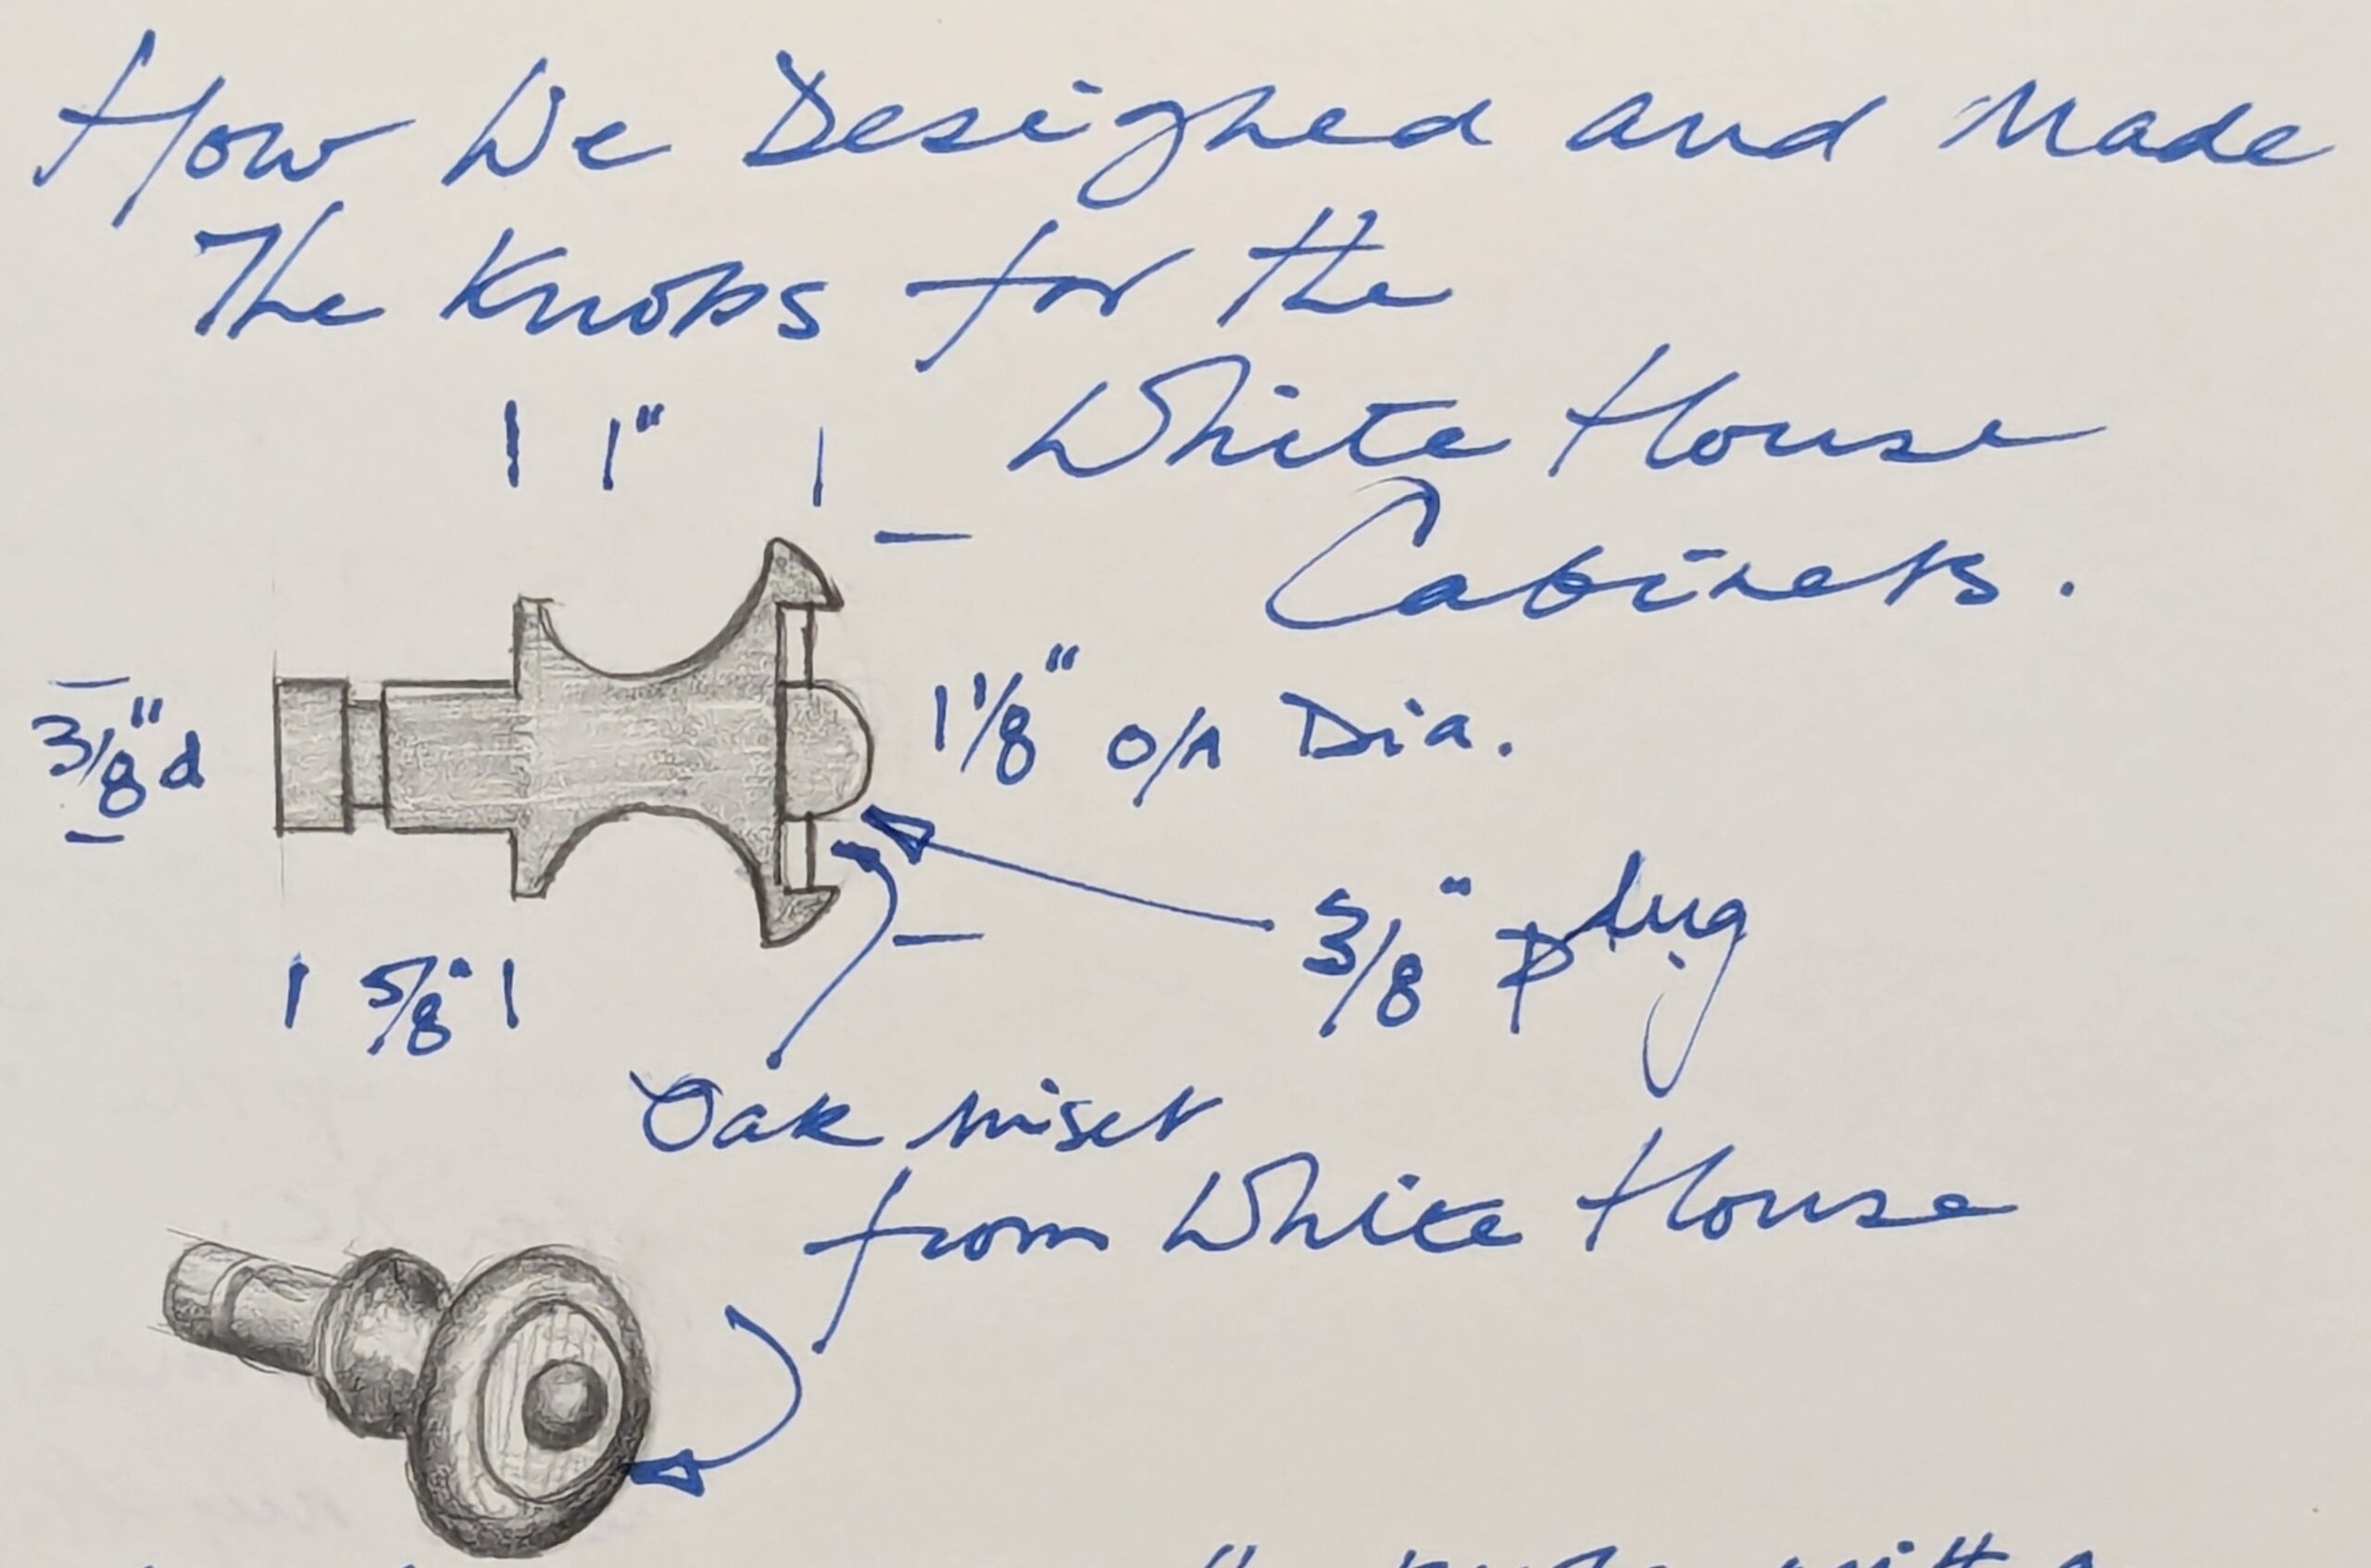 How We Designed and Made
The Knobs for the
White House
Cabinets.
1"
3/8" d
1 1/8" o/A Dia.
3/8" plug
5/8"
Oak inset
from White House